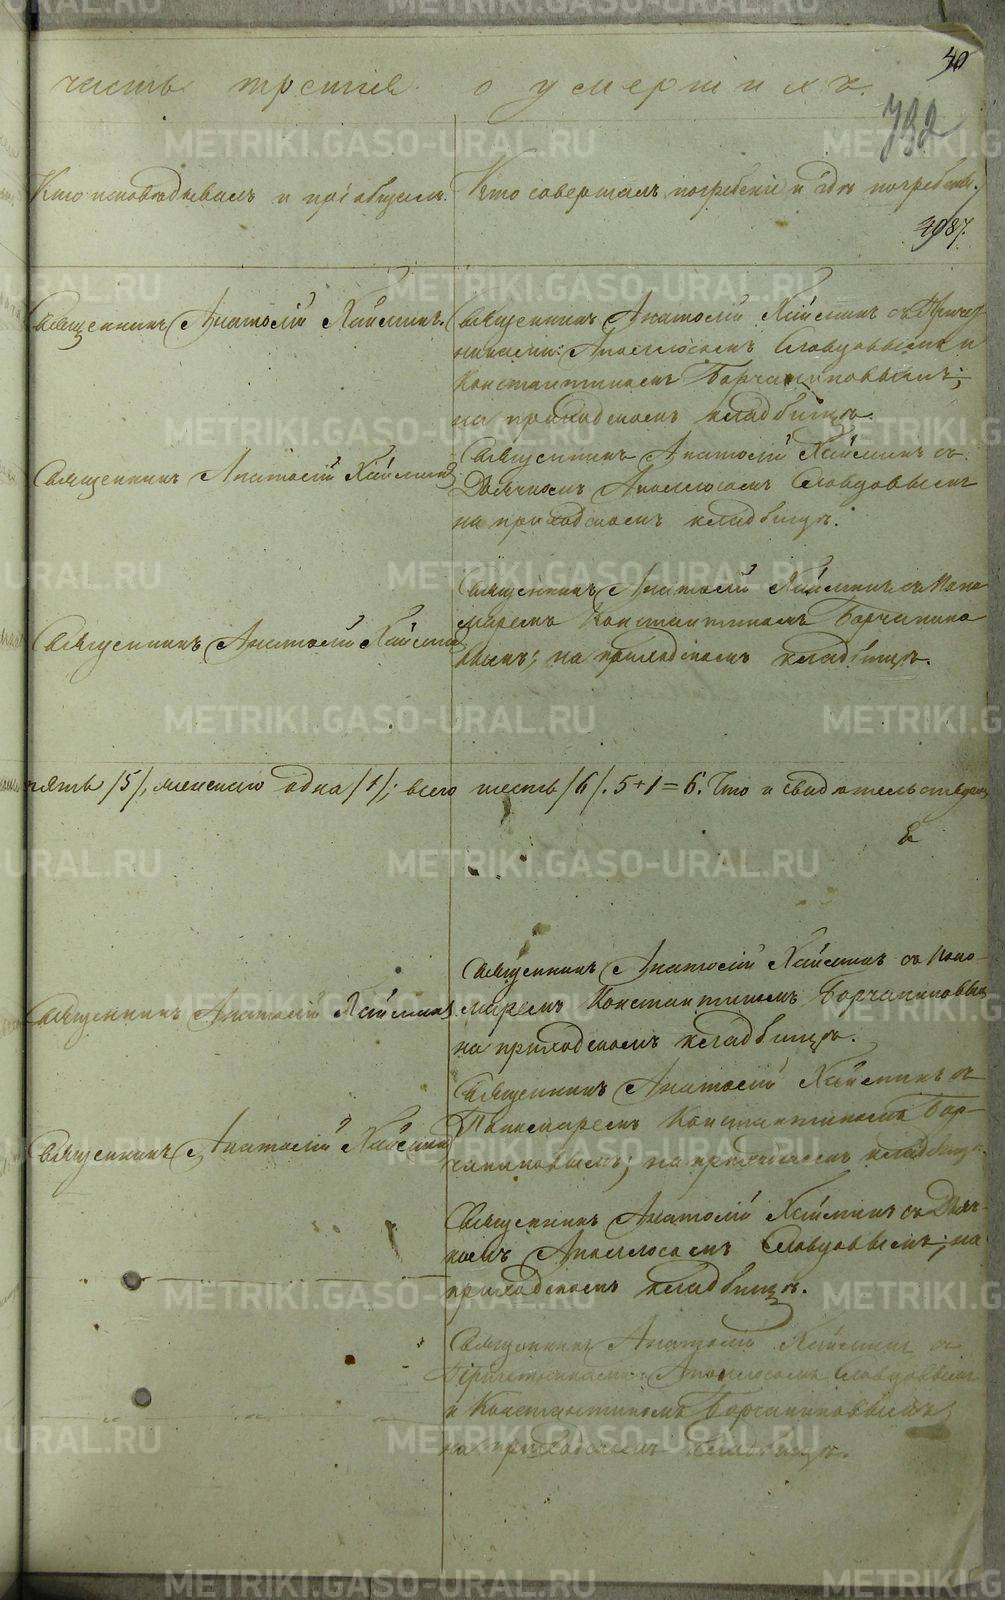 40
часть третия о умершихъ.
732
Кто исповѣдывалъ и пріобщалъ.
Кто совершалъ погребеніе и гдѣ погребены.
4087.
Священникъ Анатолій Хайминъ.
Священникъ Анатолій Хайминъ съ Причет-
никами: Аполлосомъ Словцовымъ и
Константиномъ Борчаниновымъ;
на приходскомъ кладбищѣ.
Священникъ Анатолій Хайминъ
Священникъ Анатолій Хайминъ съ
Дьячкомъ Аполлосомъ Словцовымъ
на приходскомъ кладбищѣ.
Священникъ Анатолій Хайминъ
Священникъ Анатолій Хайминъ съ Поно-
маремъ Константиномъ Борчанино-
вымъ; на приходскомъ кладбищѣ.
пять /5/, женскаго одна /1/; всего шесть /6/. 5+1=6. Что и свидѣтельствуемъ
Священникъ Анатолій Хайминъ
Священникъ Анатолій Хайминъ съ Поно-
маремъ Константиномъ Борчаниновымъ
на приходскомъ кладбищѣ.
Священникъ Анатолій Хайминъ
Священникъ Анатолій Хайминъ съ
Пономаремъ Константиномъ Бор-
чаниновымъ; на приходскомъ кладбищѣ.
Священникъ Анатолій Хайминъ съ Дьяч-
комъ Аполлосомъ Словцовымъ; на
приходскомъ кладбищѣ.
Священникъ Анатолій Хайминъ съ
Причетниками: Аполлосомъ Словцовымъ
и Константиномъ Борчаниновымъ;
на приходскомъ кладбищѣ.
METRIKI.GASO-URAL.RU